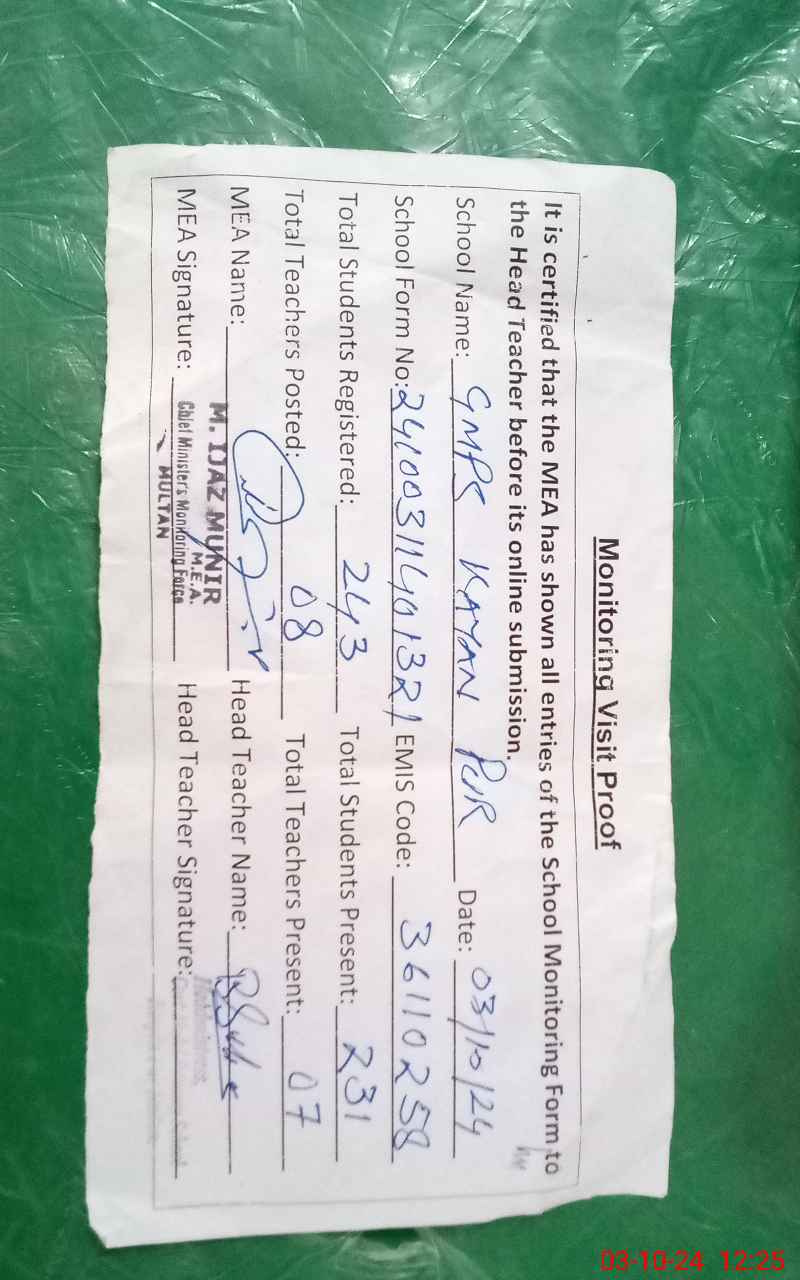 Monitoring Visit Proof
It is certified that the MEA has shown all entries of the School Monitoring Form to
the Head Teacher before its online submission.
School Name: GMPS KAYAN PUR Date: 03/10/24
School Form No: 2410031401321 EMIS Code: 36110258
Total Students Registered: 243 Total Students Present: 231
Total Teachers Posted: 08 Total Teachers Present: 07
MEA Name: M. IJAZ MUNIR Head Teacher Name:
M.E.A.
MEA Signature: Chief Minister's Monitoring Force Head Teacher Signature:
MULTAN
03-10-24 12:25